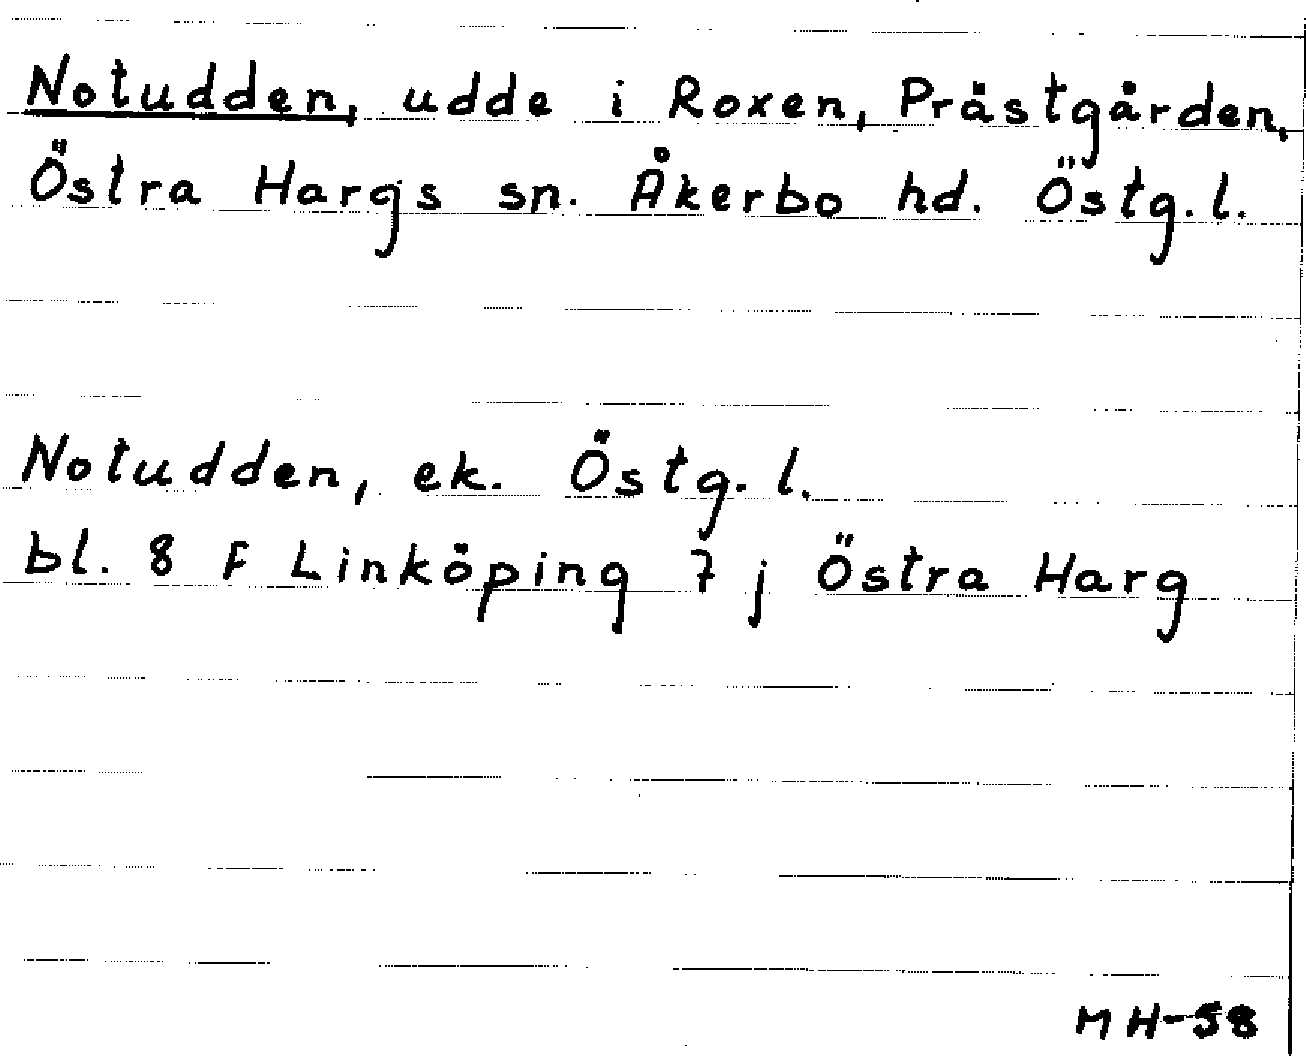 Notudden, udde i Roxen, Prästgården,
Östra Hargs sn. Åkerbo hd. Östg. l.
Notudden, ek. Östg. l.
bl. 8 F Linköping 7 j Östra Harg
MH-58